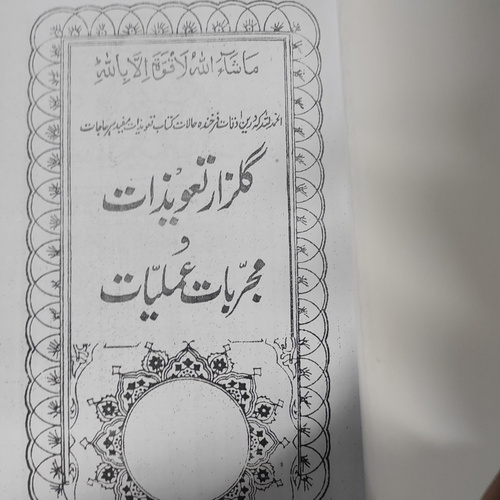 ماشآء الله لا قوة الا بالله
الحمد لله که درین اوقات فرخنده حالات کتاب تعویذات مفید ہر حاجات
گلزار تعویذات
و
مجربات عملیّات